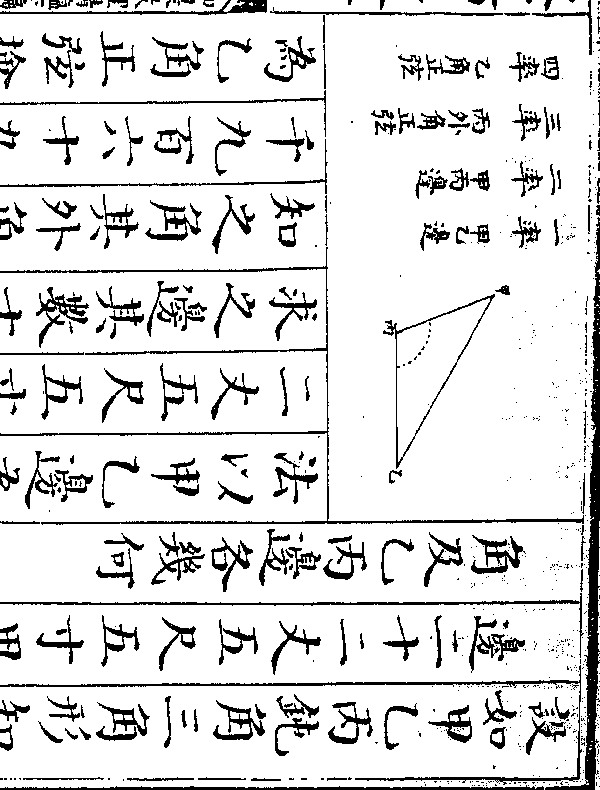 設如甲乙丙鈍角三角形知
邊二十二丈五尺五寸甲
角及乙丙邊各幾何
乙
丙
甲
一率 甲乙邊
二率 甲丙邊
三率 丙外角正弦
四率 乙角正弦
法以甲乙邊
二丈五尺五寸
求之邊其數十
知之角其外角
千九百六十九
為乙角正弦檢